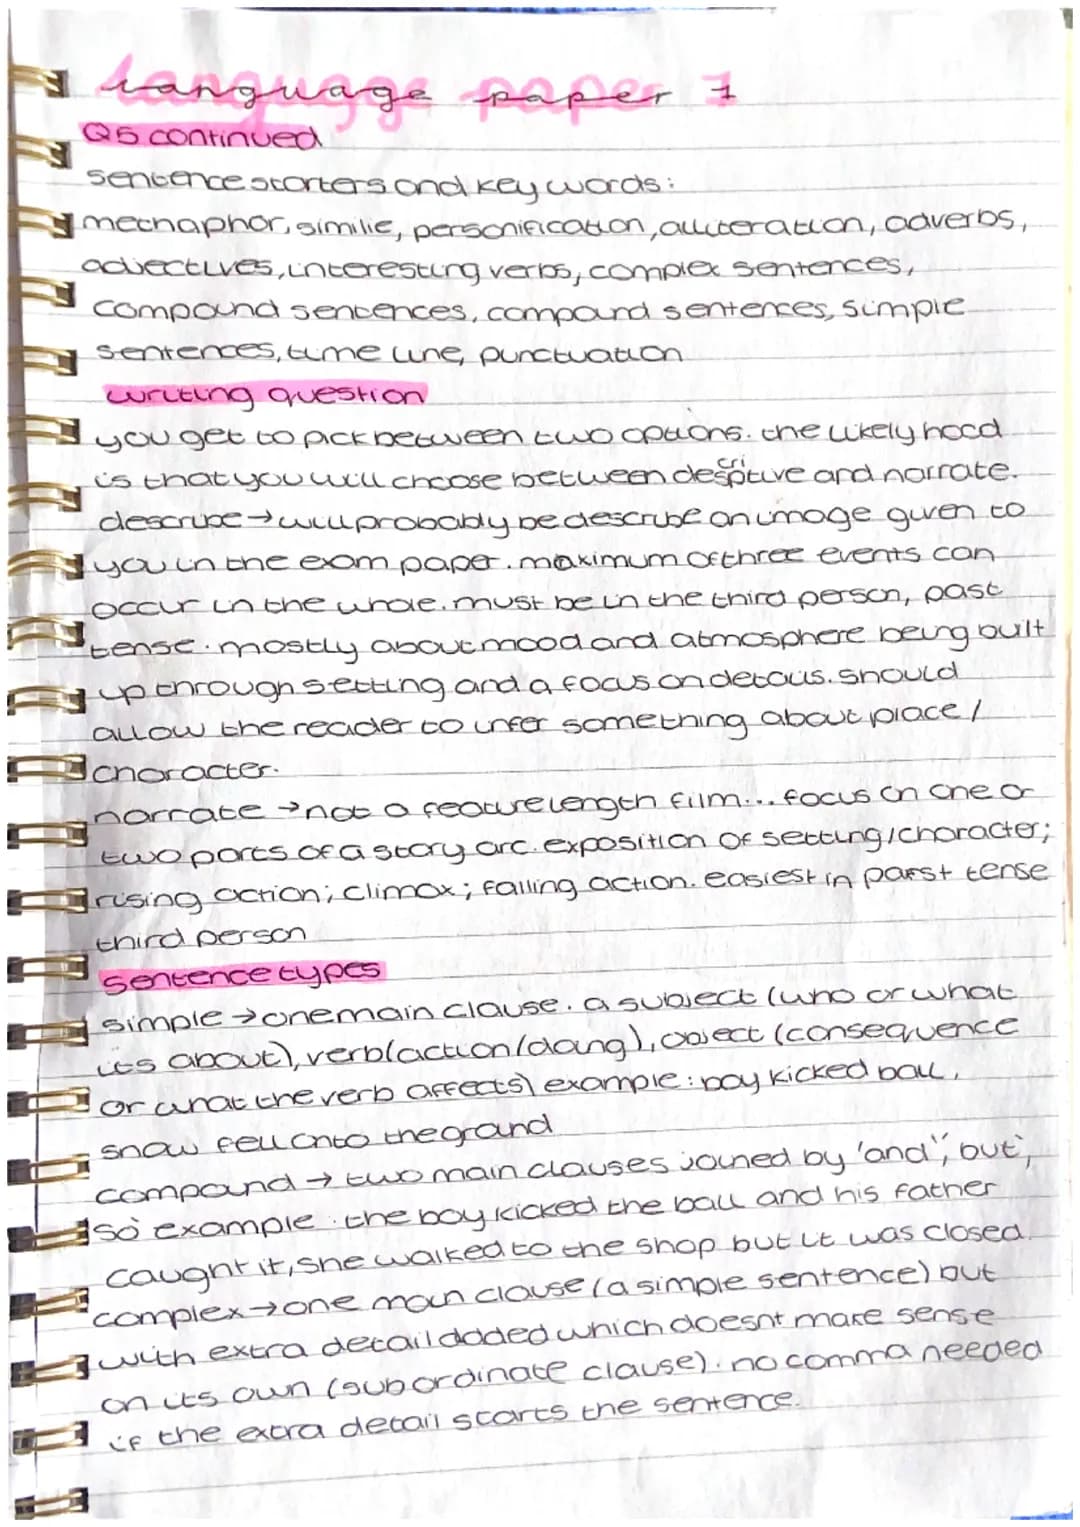 language paper 1
Q5 continued
sentence starters and key words:
mechaphor, similie, personification, alliteration, adverbs,
adjectives, interesting verbs, complex sentences,
compound sentences, compound sentences, simple
sentences, time line, punctuation
writing question
you get to pick between two options. the likely hood
is that you will choose between descriptive and narrate.
describe → will probably be describe an image given to
you in the exam paper. maximum of three events can
occur in the whole. must be in the third person, past
tense. mostly about mood and atmosphere being built
up through setting and a focus on details. should
allow the reader to infer something about place /
character.
narrate → not a feature length film... focus on one or
two parts of a story arc. exposition of setting/character;
rising action; climax; falling action. easiest in past tense
third person
sentence types
simple → one main clause. a subject (who or what
its about), verb(action/doing), object (consequence
or what the verb affects) example: boy kicked ball,
snow fell onto the ground
compound → two main clauses joined by 'and', 'but',
'so' example: the boy kicked the ball and his father
caught it, she walked to the shop but it was closed.
complex → one main clause (a simple sentence) but
with extra detail added which doesnt make sense
on its own (subordinate clause). no comma needed
if the extra detail starts the sentence.